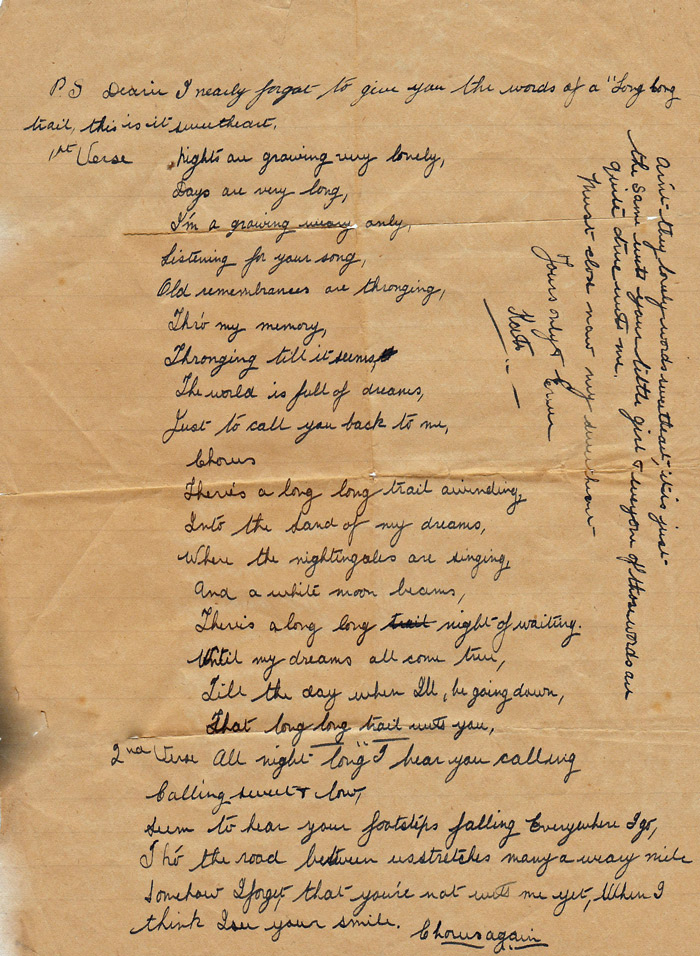 P.S Dearie I nearly forgot to give you the words of a "Long Long
trail, this is it sweetheart.
1st Verse Nights are growing very lonely,
Days are very long,
I'm a growing weary only,
Listening for your song,
Old remembrances are thronging,
Thro my memory,
Thronging till it seems,
The world is full of dreams,
Just to call you back to me,
Chorus
There's a long long trail awinding,
Into the Land of my dreams,
Where the nightingales are singing,
And a white moon beams,
There's a long long trail night of waiting.
Until my dreams all come true,
Till the day when I'll, be going down,
That long long trail with you,
2nd Verse All night long "I hear you calling
Calling sweet & low,
Seem to hear your footsteps falling Everywhere I go,
Tho' the road between us stretches many a weary mile
Somehow I forget, that you're not with me yet, When I
think I see your smile. Chorus again
Ain't they lovely words sweetheart, it is just
the same with your little girl & everyone of those words are
quite true with me.
Must close now my sweetheart
Yours only & Ever